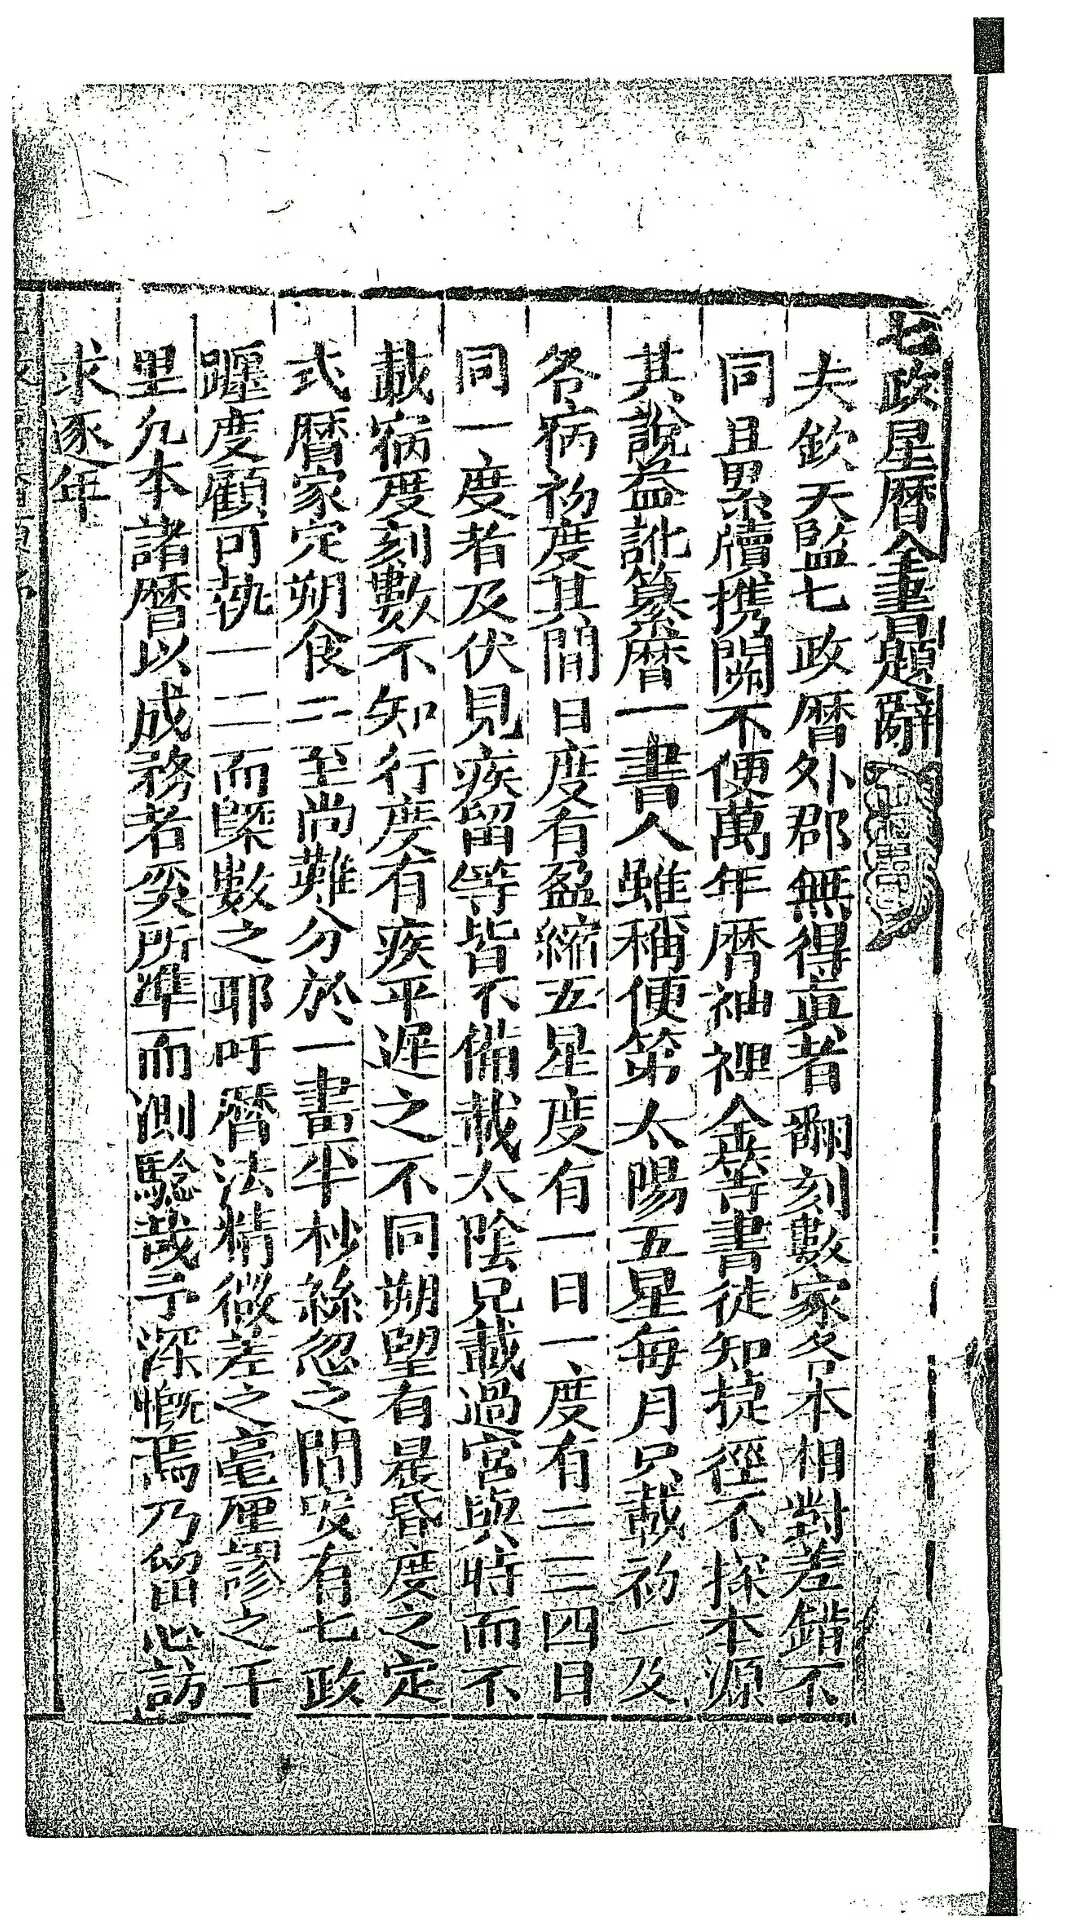 七政星曆全書題辭
夫欽天監七政曆外郡無得真者翻刻數家各本相對差錯不
同且累牘携閱不便萬年曆袖裡金等書徒知捷徑不探本源
其說益訛纂曆一書人雖稱便第太陽五星每月只載初一及
各病初度其間日度有盈縮五星度有一日一度有二三四日
同一度者及伏見疾留等皆不備載太陰兄載過宮與時而不
載病度刻數不知行度有疾平遲之不同朔望有晨昏度之定
式曆家定朔食二至尚難分於一晝半秒絲忽之間叐有七政
躔度顧可執一二而槩數之耶吁曆法精微差之毫厘謬之千
里凢本諸曆以成務者奚所準而測驗哉予深慨焉乃留心訪
求逐年